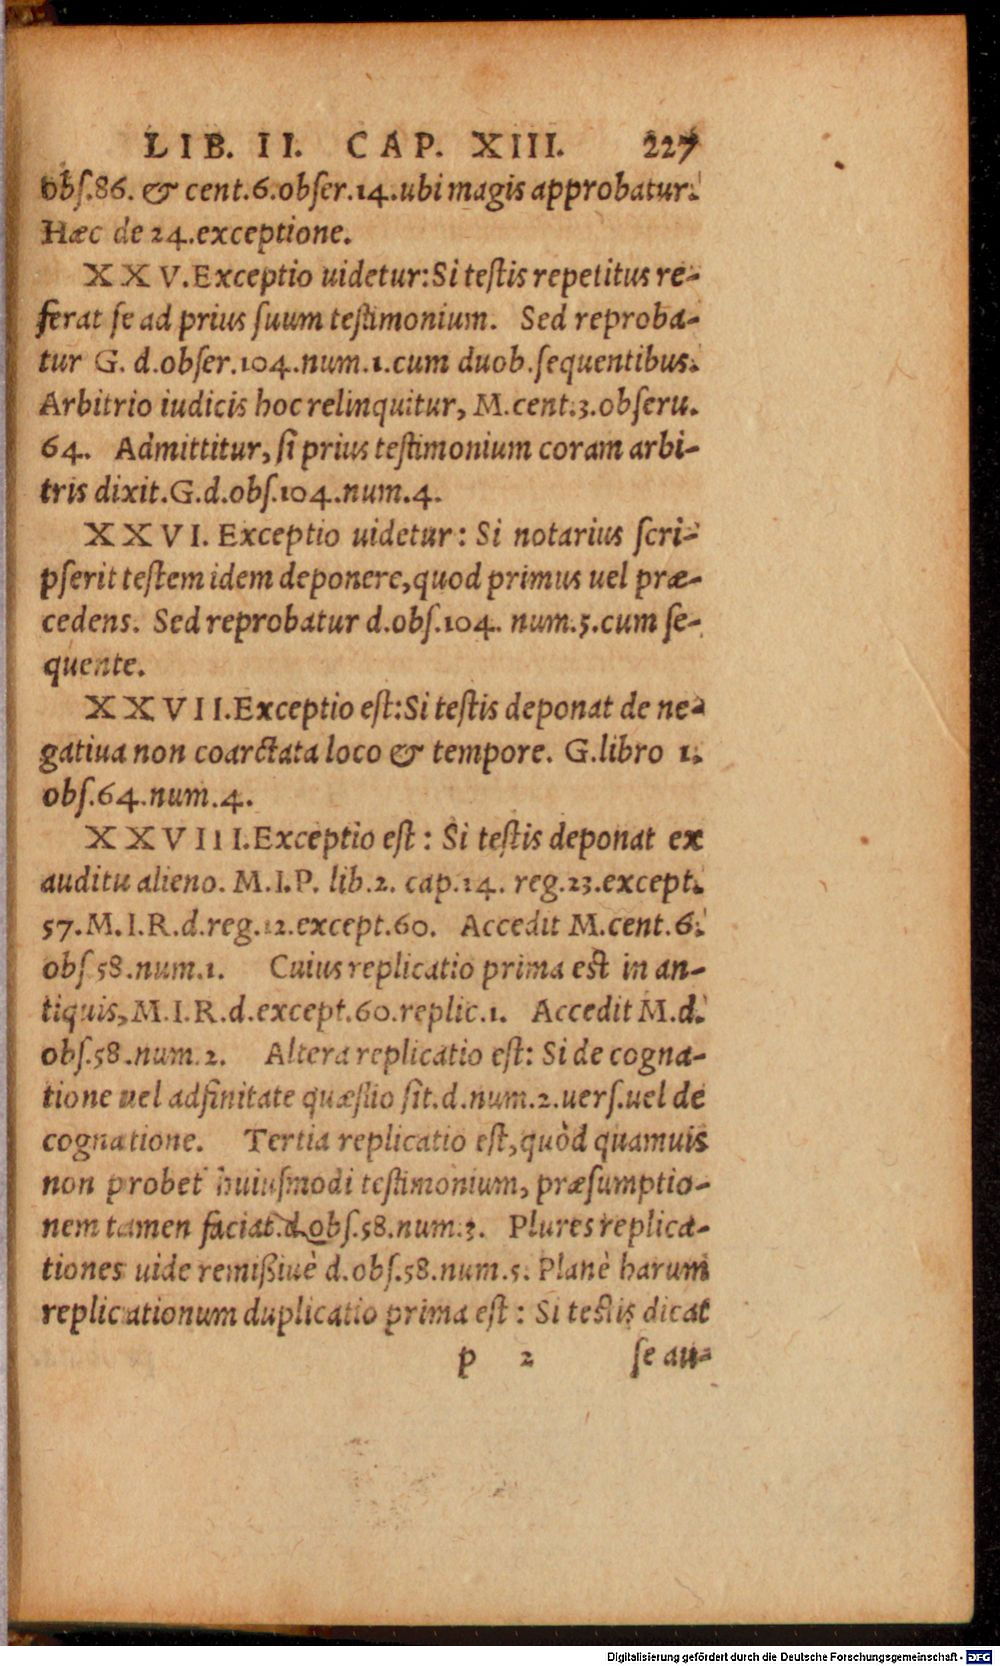 LIB. II. CAP. XIII. 227
obſ.86. & cent.6.obſer.14.ubi magis approbatur.
Hæc de 24.exceptione.
XXV.Exceptio uidetur:Si teſtis repetitus re-
ferat ſe ad prius ſuum teſtimonium. Sed reproba-
tur G. d.obſer.104.num.1.cum duob.ſequentibus.
Arbitrio iudicis hoc relinquitur, M.cent.3.obſeru.
64. Admittitur, ſi prius teſtimonium coram arbi-
tris dixit.G.d.obſ.104.num.4.
XXVI. Exceptio uidetur: Si notarius ſcri-
pſerit teſtem idem deponere,quod primus uel præ-
cedens. Sed reprobatur d.obſ.104. num.5.cum ſe-
quente.
XXVII.Exceptio eſt:Si teſtis deponat de ne-
gatiua non coarctata loco & tempore. G.libro 1.
obſ.64.num.4.
XXVIII.Exceptio eſt: Si teſtis deponat ex
auditu alieno. M.I.P. lib.2. cap.14. reg.23.except.
57.M.I.R.d.reg.12.except.60. Accedit M.cent.6.
obſ.58.num.1. Cuius replicatio prima eſt in an-
tiquis, M.I.R.d.except.60.replic.1. Accedit M.d.
obſ.58.num.2. Altera replicatio eſt: Si de cogna-
tione uel adfinitate quæſtio ſit.d.num.2.uerſ.uel de
cognatione. Tertia replicatio eſt,quòd quamuis
non probet huiuſmodi teſtimonium, præſumptio-
nem tamen faciat.d.obſ.58.num.3. Plures replica-
tiones uide remißiuè d.obſ.58.num.5. Planè harum
replicationum duplicatio prima eſt: Si teſtis dicat
p 2 ſe au-
Digitalisierung gefördert durch die Deutsche Forschungsgemeinschaft - DFG